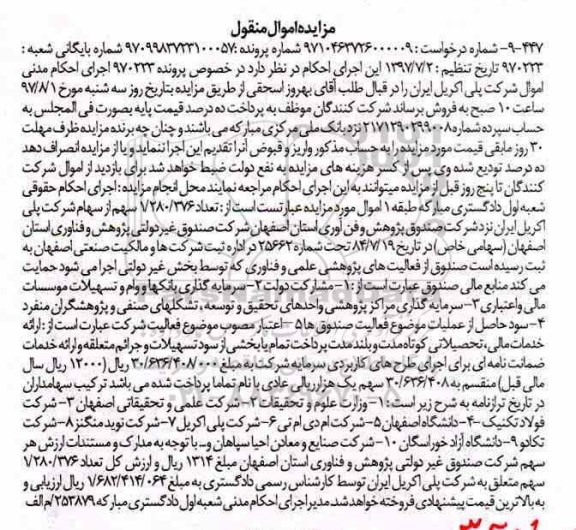 مزایده اموال منقول
۹-۴۴۷- شماره درخواست : ۹۷۱۰۴۶۳۷۲۶۰۰۰۰۰۹ شماره پرونده :۹۷۰۹۹۸۳۷۲۳۱۰۰۰۵۷ شماره بایگانی شعبه :
۹۷۰۲۲۳ تاریخ تنظیم : ۱۳۹۷/۷/۲ این اجرای احکام در نظر دارد در خصوص پرونده ۹۷۰۲۲۳ اجرای احکام مدنی
اموال شرکت پلی اکریل ایران را در قبال طلب آقای بهروز اسحقی از طریق مزایده بتاریخ روز سه شنبه مورخ ۹۷/۸/۱
ساعت ۱۰ صبح به فروش برساند شرکت کنندگان موظف به پرداخت ده درصد قیمت پایه بصورت فی المجلس به
حساب سپرده شماره ۲۱۷۱۲۹۰۲۹۹۰۰۸ نزد بانک ملی مرکزی مبارکه می باشند و چنان چه برنده مزایده ظرف مهلت
۳۰ روز مابقی قیمت مورد مزایده را به حساب مذکور واریز و قبوض آنرا تقدیم این اجرا ننماید و یا از مزایده انصراف دهد
ده درصد تودیع شده وی پس از کسر هزینه های مزایده به نفع دولت ضبط خواهد شد برای بازدید از اموال شرکت
کنندگان تا پنج روز قبل از مزایده میتوانند به این اجرای احکام مراجعه نمایند محل انجام مزایده : اجرای احکام حقوقی
شعبه اول دادگستری مبارکه طبقه ۱ اموال مورد مزایده عبارت است از : تعداد ۱/۲۸۰/۳۷۶ سهم از سهام شرکت پلی
اکریل ایران نزد شرکت صندوق پژوهش و فن آوری استان اصفهان شرکت صندوق غیردولتی پژوهش و فناوری استان
اصفهان (سهامی خاص) در تاریخ ۸۴/۷/۱۹ تحت شماره ۲۵۶۶۲ در اداره ثبت شرکت ها و مالکیت صنعتی اصفهان به
ثبت رسیده است صندوق از فعالیت های پژوهشی علمی و فناوری که توسط بخش غیر دولتی اجرا می شود حمایت
می کند منابع مالی صندوق عبارت است از : ۱- مشارکت دولت ۲- سرمایه گذاری بانکها و وام و تسهیلات موسسات
مالی و اعتباری ۳- سرمایه گذاری مراکز پژوهشی واحدهای تحقیق و توسعه ، تشکلهای صنفی و پژوهشگران منفرد
۴- سود حاصل از عملیات موضوع فعالیت صندوق ها ۵- اعتبار مصوب موضوع فعالیت شرکت عبارت است از : ارائه
خدمات مالی ، تحصیلاتی کوتاه مدت و بلند مدت پرداخت تمام یا بخشی از سود تسهیلات و جرائم متعلقه و ارائه خدمات
ضمانت نامه ای برای اجرای طرح های کاربردی سرمایه شرکت به مبلغ ۳۰/۶۳۶/۴۰۸/۰۰۰ ریال (۱۲۰۰۰ ریال سال
مالی قبل) منقسم به ۳۰/۶۳۶/۴۰۸ سهم یک هزار ریالی عادی با نام تماما پرداخت شده می باشد ترکیب سهامداران
در تاریخ ترازنامه به شرح زیر است : ۱- وزارت علوم و تحقیقات ۲- شرکت علمی و تحقیقاتی اصفهان ۳- شرکت
فولاد تکنیک ۴- دانشگاه اصفهان ۵- شرکت ام دی ام تی ۶- شرکت پلی اکریل ۷- شرکت نوید منگنز ۸- شرکت
تکادو ۹- دانشگاه آزاد خوراسگان ۱۰- شرکت صنایع و معادن احیا سپاهان و... با توجه به مدارک و مستندات ارزش هر
سهم شرکت صندوق غیر دولتی پژوهش و فناوری استان اصفهان مبلغ ۱۳۱۴ ریال و ارزش کل تعداد ۱/۲۸۰/۳۷۶
سهم متعلق به شرکت پلی اکریل ایران توسط کارشناس رسمی دادگستری به مبلغ ۱/۶۸۲/۴۱۴/۰۶۴ ریال ارزیابی و
به بالاترین قیمت پیشنهادی فروخته خواهد شد. مدیر اجرای احکام مدنی شعبه اول دادگستری مبارکه ۲۵۳۸۷۹/م الف